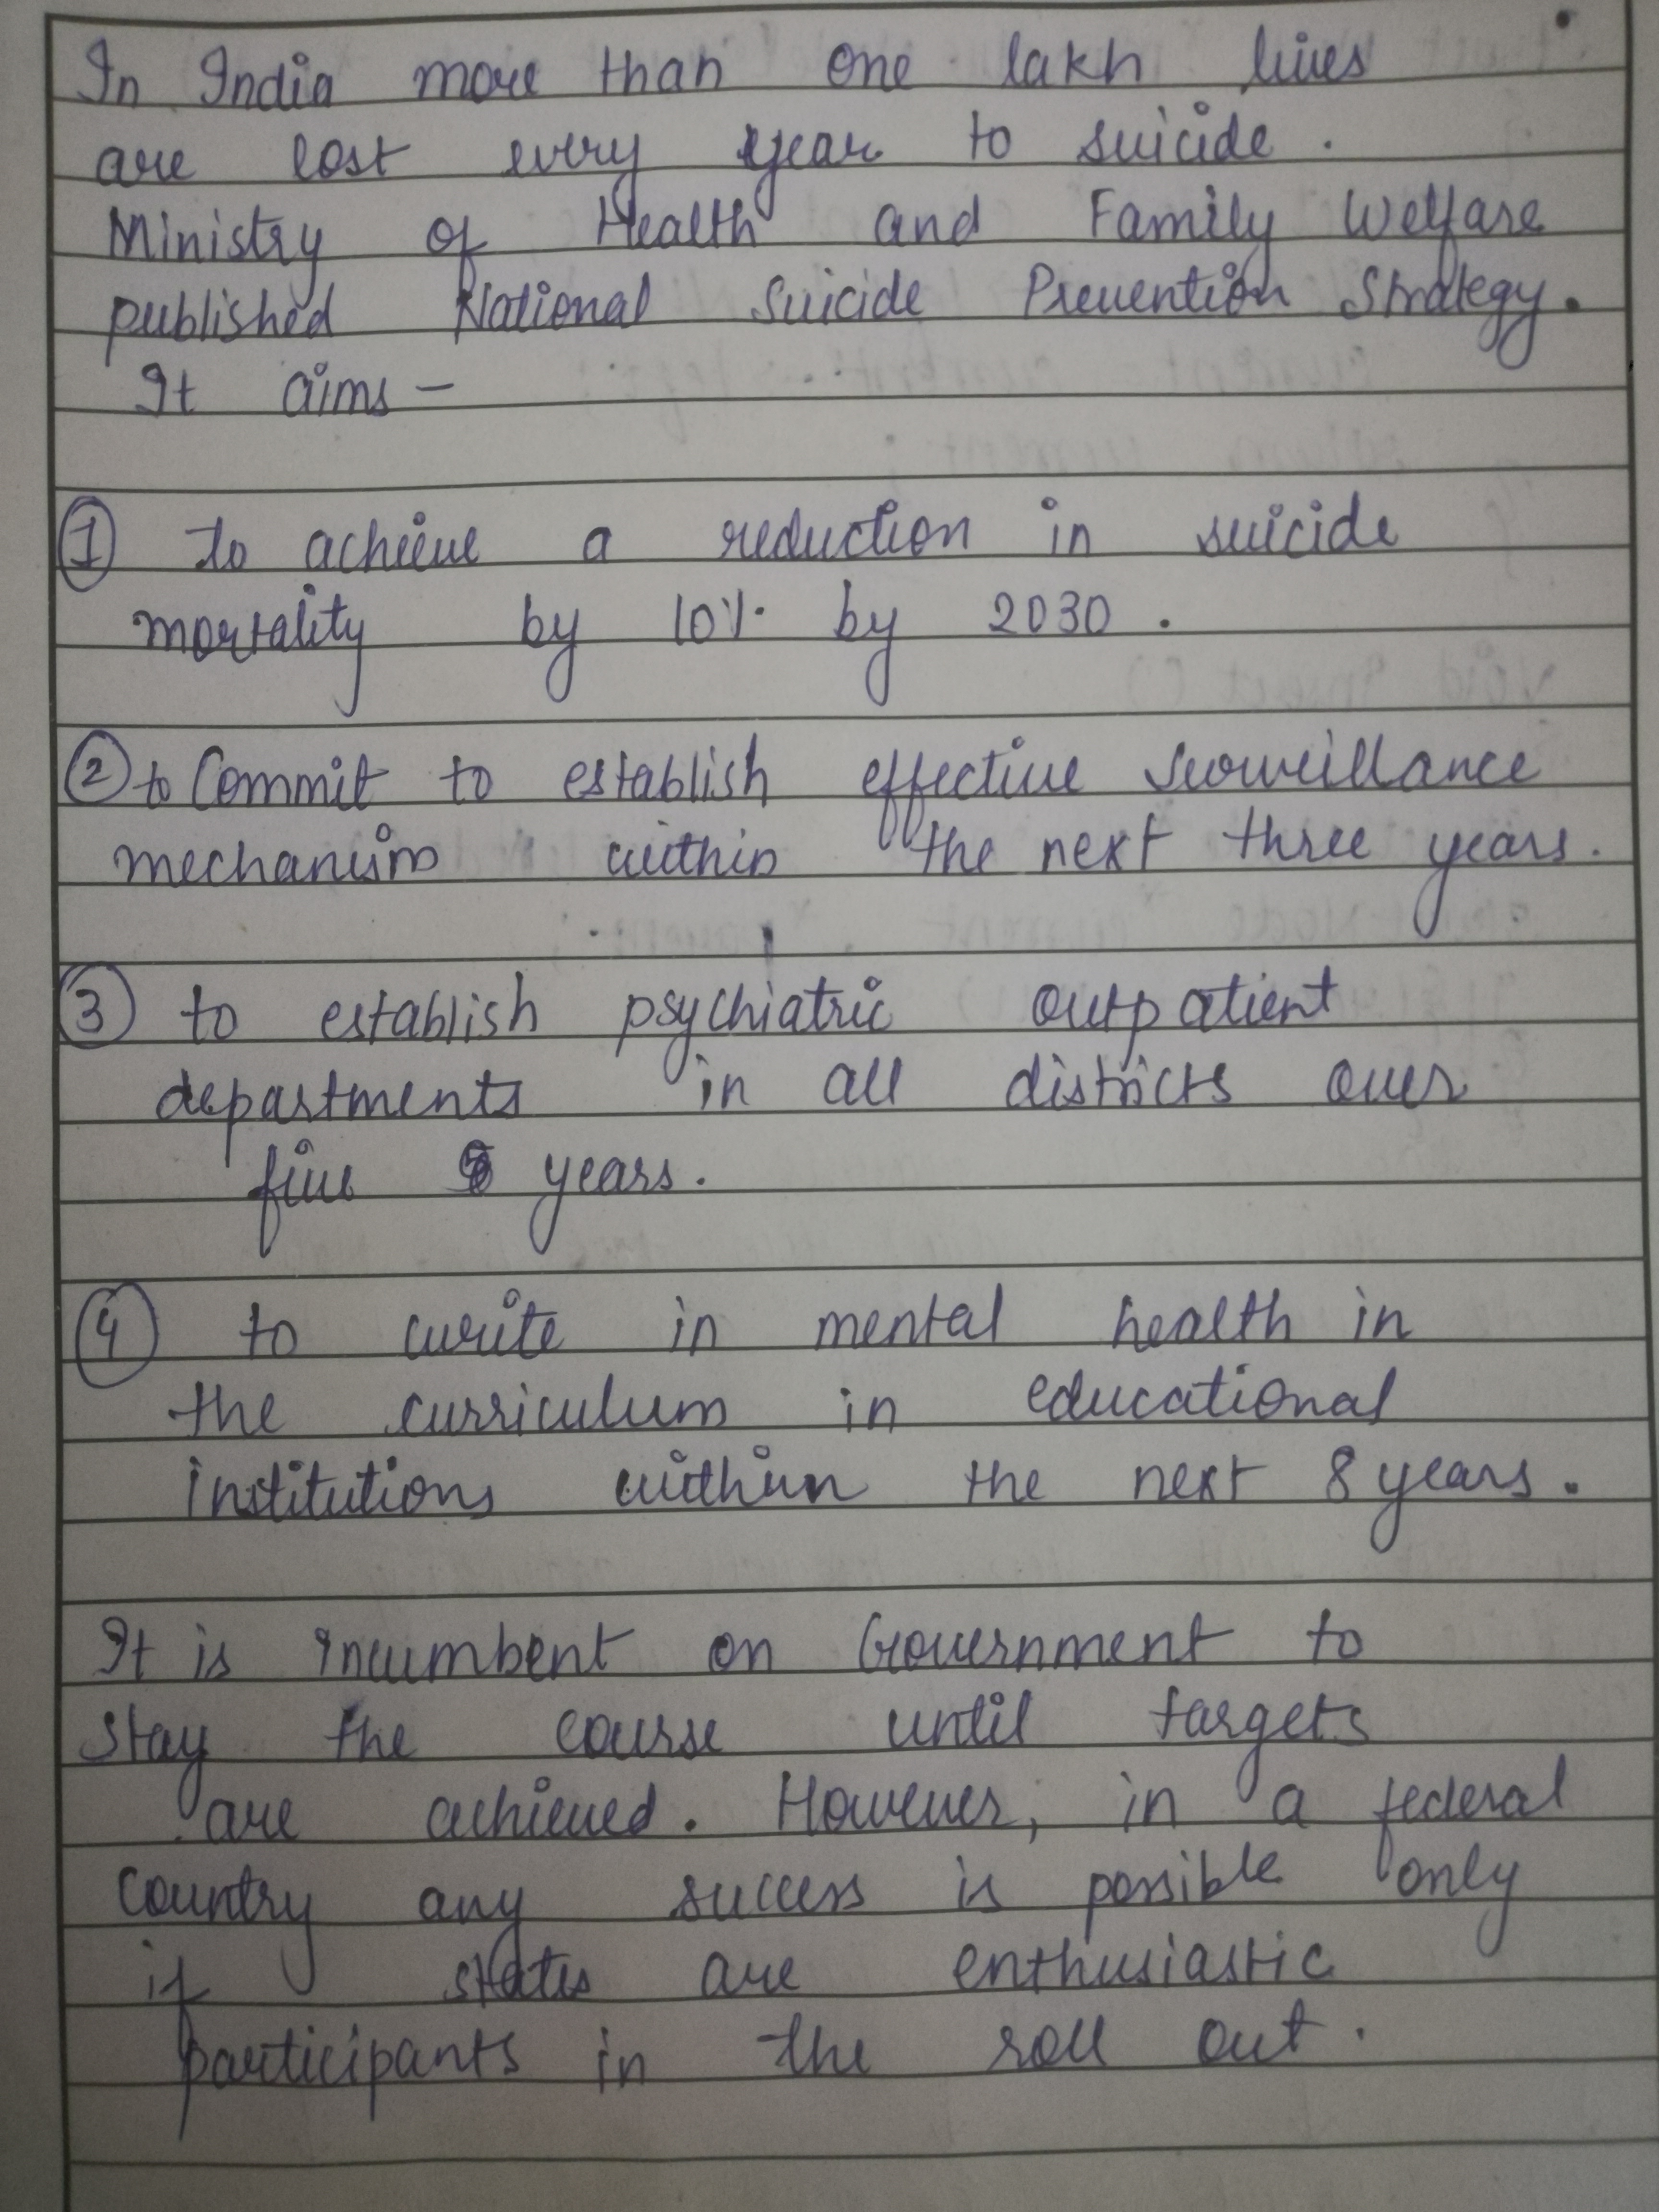 In India more than one lakh lives
are lost every year to suicide.
Ministry of Health and Family Welfare
published National Suicide Prevention Strategy.
It aims -
① to achieve a reduction in suicide
mortality by 10% by 2030.
② to Commit to establish effective surveillance
mechanism within the next three years.
③ to establish psychiatric outpatient
departments in all districts over
five years.
④ to write in mental health in
the curriculum in educational
institutions within the next 8 years.
It is incumbent on Government to
stay the course until targets
are achieved. However, in a federal
country any success is possible only
if states are enthusiastic
participants in the roll out.